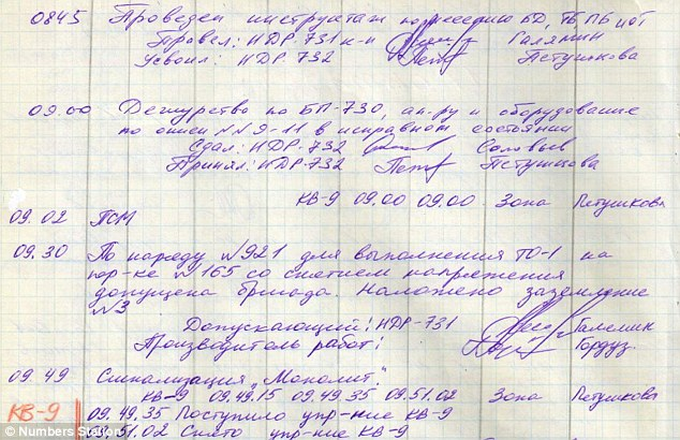 0845 Проведен инструктаж по несению БД, ТБ ПБ и ОТ
Провел: НДР-731 к-н Галямин
Усвоил: НДР-732 Петушкова
09.00 Дежурство по БП-730, ап-ру и оборудование
по описи №№ 9-11 в исправном состоянии
Сдал: НДР-732 Соловьев
Принял: НДР-732 Петушкова
КВ-9 09.00 09.00 Зона Петушкова
09.02 ПСМ
09.30 По наряду №921 для выполнения ТО-1 на
№165 со снятием напряжения
допущена бригада. Наложено заземление
№3
Допускающий: НДР-731
Производитель работ:
09.49 Сигнализация "Монолит".
КВ-9 09.49.15 09.49.35 09.51.02 Зона Петушкова
КВ-9 09.49.35 Поступило упр-ние КВ-9
09.51.02 Снято упр-ние КВ-9
© Numbers Station